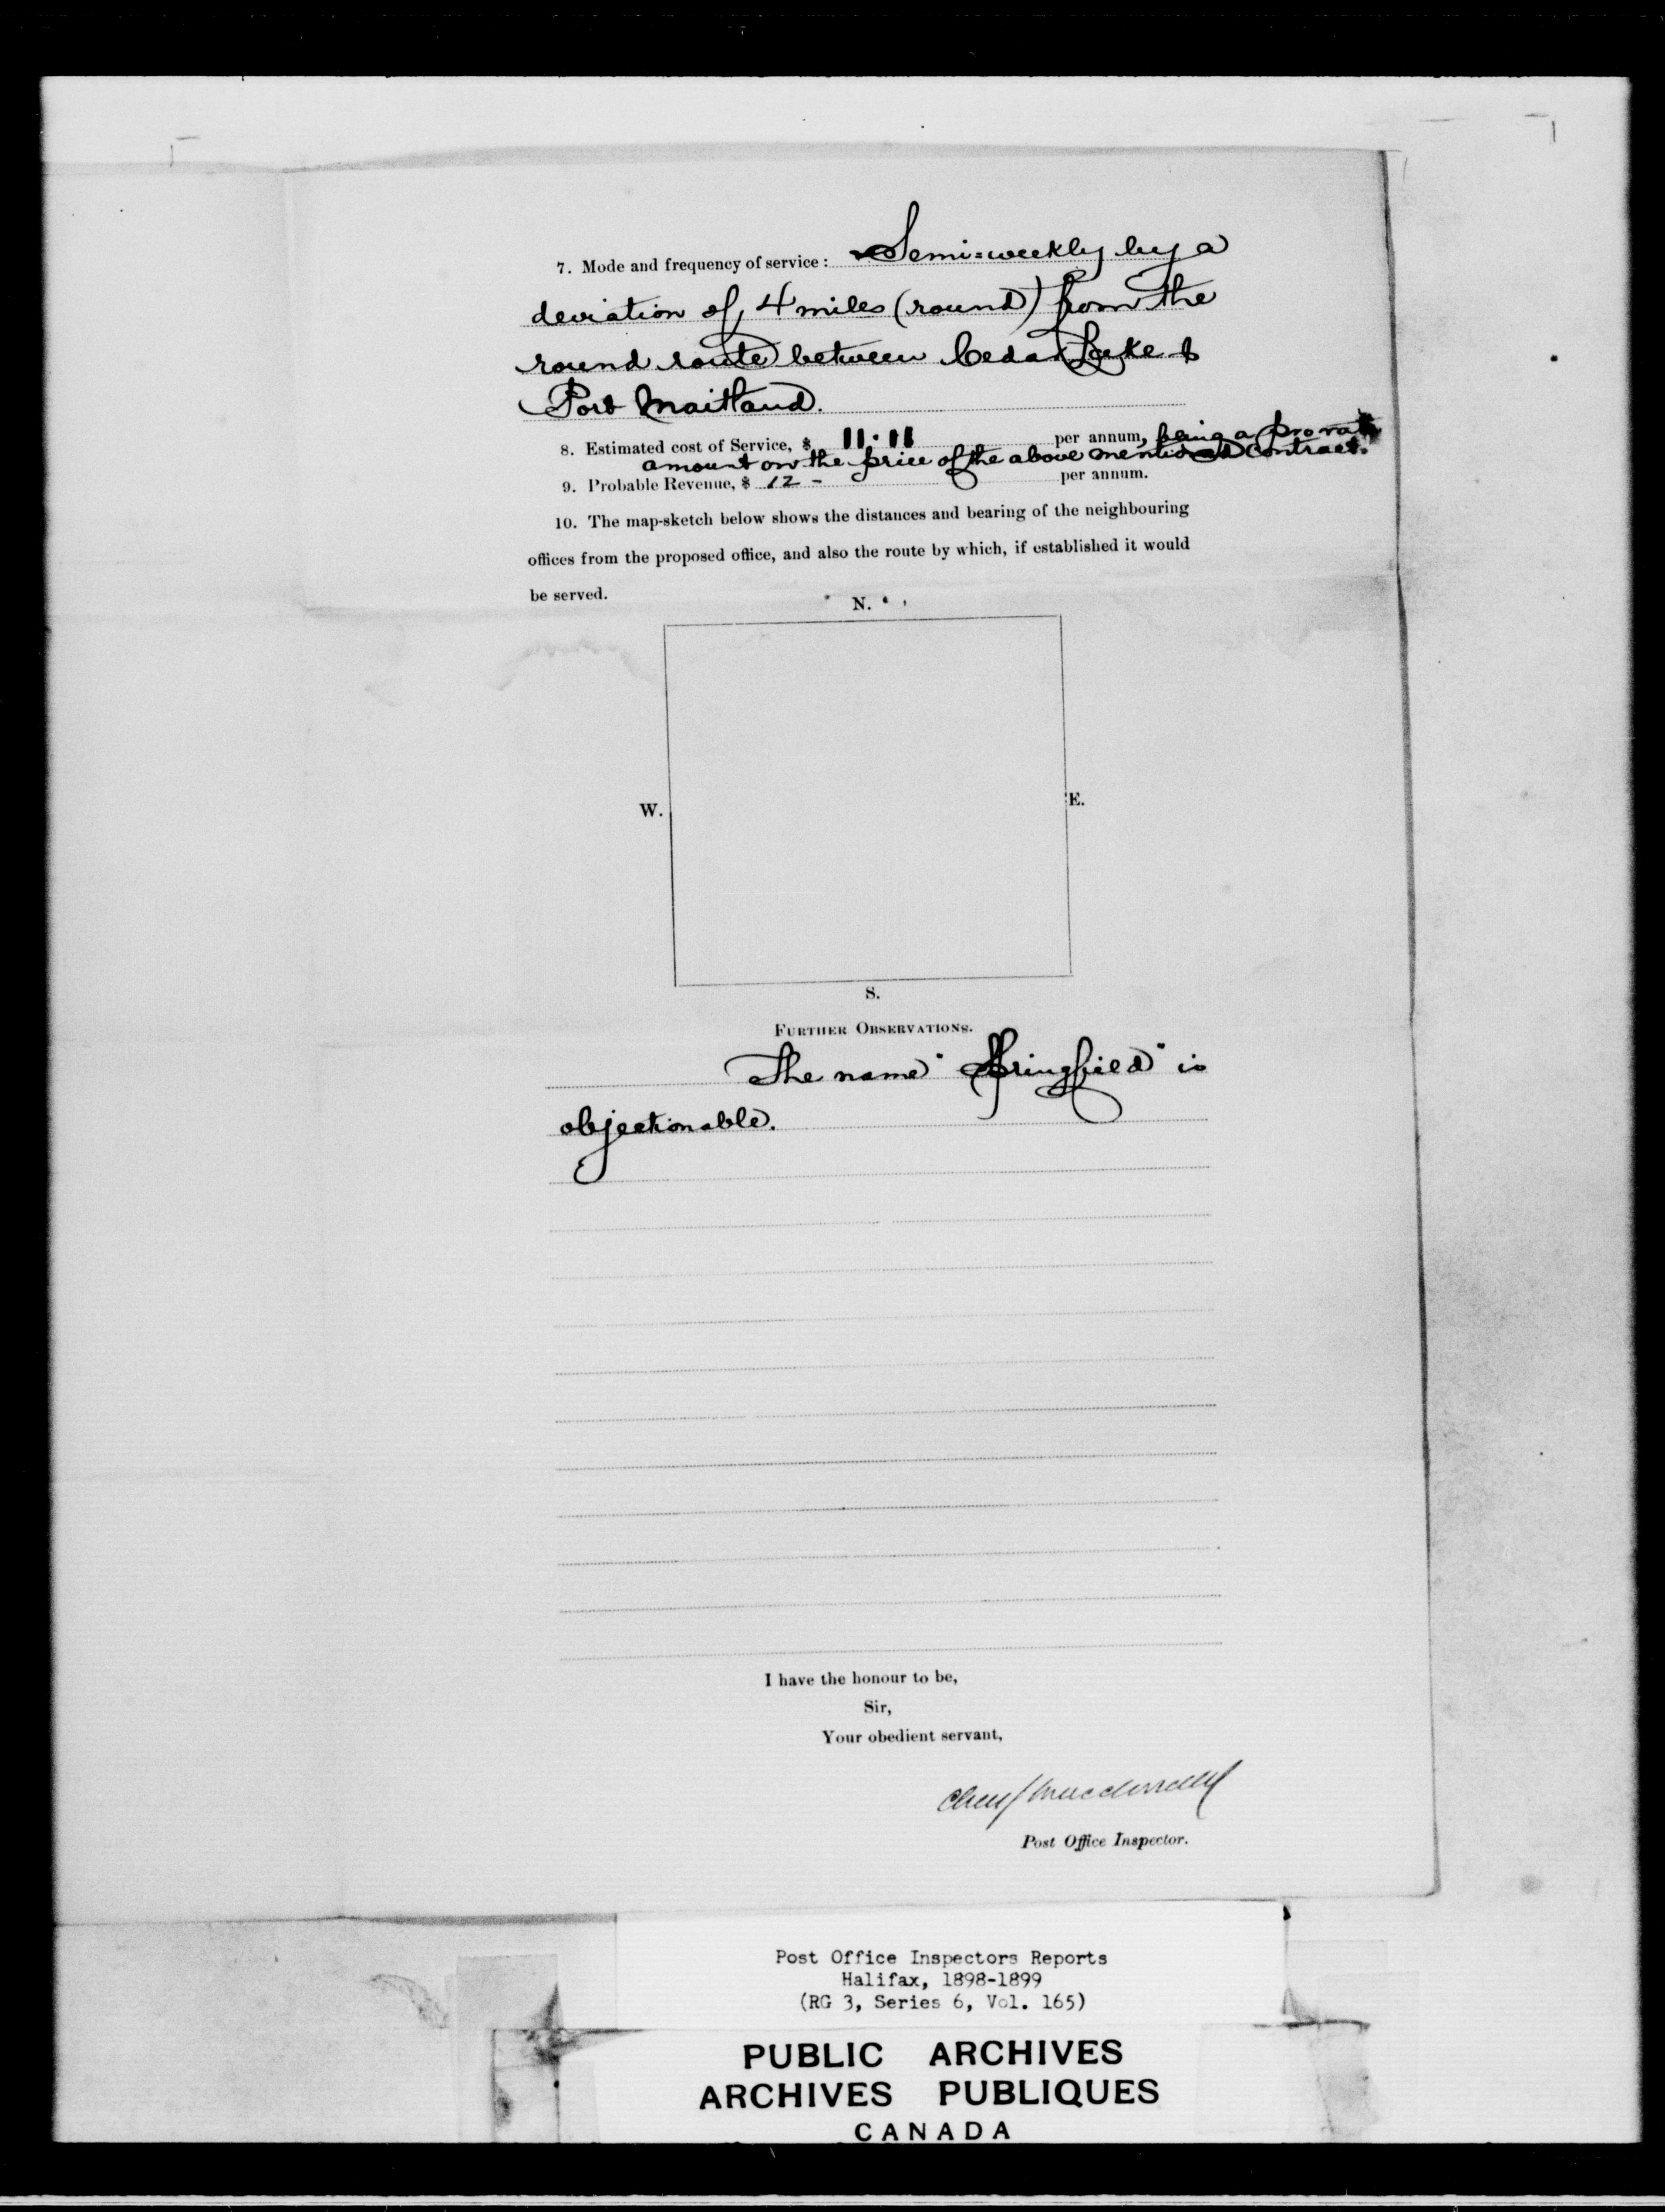 7. Mode and frequency of service: Semi=weekly by a
deviation of 4 miles (round) from the
round route between Cedar Lake &
Port Maitland.
8. Estimated cost of Service, $ 11.11 per annum, being a pro rata
amount on the price of the above mentioned contract.
9. Probable Revenue, $ 12 - per annum.
10. The map-sketch below shows the distances and bearing of the neighbouring
offices from the proposed office, and also the route by which, if established it would
be served.
N.
W.
E.
S.
FURTHER OBSERVATIONS.
The name "Springfield" is
objectionable.
I have the honour to be,
Sir,
Your obedient servant,
Macdonald
Post Office Inspector.
Post Office Inspectors Reports
Halifax, 1898-1899
(RG 3, Series 6, Vol. 165)
PUBLIC ARCHIVES
ARCHIVES PUBLIQUES
CANADA